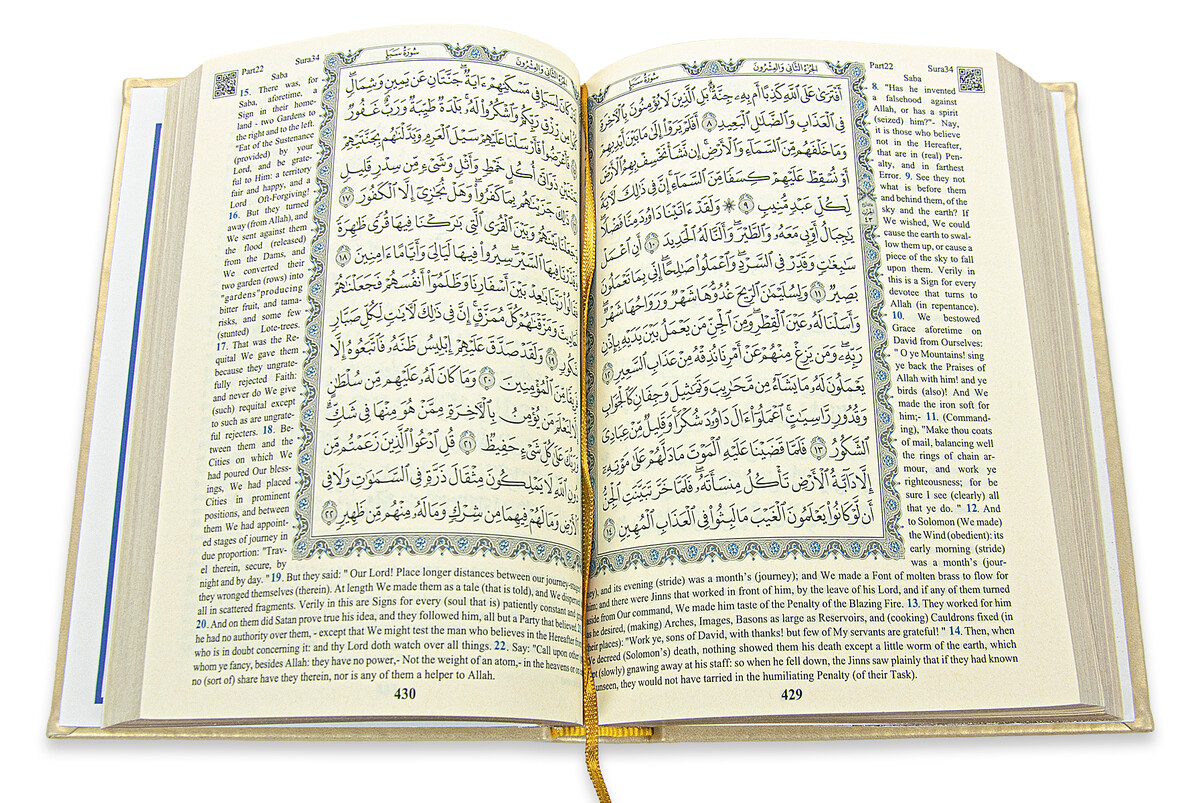 Part22 Sura34
الجزء الثاني والعشرون
سورة سبإ
أَفْتَرَىٰ عَلَى ٱللَّهِ كَذِبًا أَم بِهِۦ جِنَّةٌۢ بَلِ ٱلَّذِينَ لَا يُؤْمِنُونَ بِٱلْـَٔاخِرَةِ
فِى ٱلْعَذَابِ وَٱلضَّلَـٰلِ ٱلْبَعِيدِ ٨ أَفَلَمْ يَرَوْا۟ إِلَىٰ مَا بَيْنَ أَيْدِيهِمْ
وَمَا خَلْفَهُم مِّنَ ٱلسَّمَآءِ وَٱلْأَرْضِ إِن نَّشَأْ نَخْسِفْ بِهِمُ ٱلْأَرْضَ
أَوْ نُسْقِطْ عَلَيْهِمْ كِسَفًا مِّنَ ٱلسَّمَآءِ إِنَّ فِى ذَٰلِكَ لَـَٔايَةً
لِّكُلِّ عَبْدٍ مُّنِيبٍ ٩ ۞ وَلَقَدْ ءَاتَيْنَا دَاوُۥدَ مِنَّا فَضْلًا
يَـٰجِبَالُ أَوِّبِى مَعَهُۥ وَٱلطَّيْرَ وَأَلَنَّا لَهُ ٱلْحَدِيدَ ١٠ أَنِ ٱعْمَلْ
سَـٰبِغَـٰتٍ وَقَدِّرْ فِى ٱلسَّرْدِ وَٱعْمَلُوا۟ صَـٰلِحًا إِنِّى بِمَا تَعْمَلُونَ
بَصِيرٌ ١١ وَلِسُلَيْمَـٰنَ ٱلرِّيحَ غُدُوُّهَا شَهْرٌ وَرَوَاحُهَا شَهْرٌ
وَأَسَلْنَا لَهُۥ عَيْنَ ٱلْقِطْرِ وَمِنَ ٱلْجِنِّ مَن يَعْمَلُ بَيْنَ يَدَيْهِ بِإِذْنِ
رَبِّهِۦ وَمَن يَزِغْ مِنْهُمْ عَنْ أَمْرِنَا نُذِقْهُ مِنْ عَذَابِ ٱلسَّعِيرِ ١٢
يَعْمَلُونَ لَهُۥ مَا يَشَآءُ مِن مَّحَـٰرِيبَ وَتَمَـٰثِيلَ وَجِفَانٍ كَٱلْجَوَابِ
وَقُدُورٍ رَّاسِيَـٰتٍ ٱعْمَلُوٓا۟ ءَالَ دَاوُۥدَ شُكْرًا وَقَلِيلٌ مِّنْ عِبَادِىَ
ٱلشَّكُورُ ١٣ فَلَمَّا قَضَيْنَا عَلَيْهِ ٱلْمَوْتَ مَا دَلَّهُمْ عَلَىٰ مَوْتِهِۦٓ
إِلَّا دَآبَّةُ ٱلْأَرْضِ تَأْكُلُ مِنسَأَتَهُۥ فَلَمَّا خَرَّ تَبَيَّنَتِ ٱلْجِنُّ
أَن لَّوْ كَانُوا۟ يَعْلَمُونَ ٱلْغَيْبَ مَا لَبِثُوا۟ فِى ٱلْعَذَابِ ٱلْمُهِينِ ١٤
Saba
8. "Has he invented
a falsehood against
Allah, or has a spirit
(seized) him?"- Nay,
it is those who believe
not in the Hereafter,
that are in (real) Pen-
alty, and in farthest
Error. 9. See they not
what is before them
and behind them, of the
sky and the earth? If
We wished, We could
cause the earth to swal-
low them up, or cause a
piece of the sky to fall
upon them. Verily in
this is a Sign for every
devotee that turns to
Allah (in repentance).
10. We bestowed
Grace aforetime on
David from Ourselves:
" O ye Mountains! sing
ye back the Praises of
Allah with him! and ye
birds (also)! And We
made the iron soft for
him;- 11. (Command-
ing), "Make thou coats
of mail, balancing well
the rings of chain ar-
mour, and work ye
righteousness; for be
sure I see (clearly) all
that ye do. " 12. And
to Solomon (We made)
the Wind (obedient): its
early morning (stride)
was a month's (jour-
and its evening (stride) was a month's (journey); and We made a Font of molten brass to flow for
and there were Jinns that worked in front of him, by the leave of his Lord, and if any of them turned
aside from Our command, We made him taste of the Penalty of the Blazing Fire. 13. They worked for him
as he desired, (making) Arches, Images, Basons as large as Reservoirs, and (cooking) Cauldrons fixed (in
their places): "Work ye, sons of David, with thanks! but few of My servants are grateful! " 14. Then, when
We decreed (Solomon's) death, nothing showed them his death except a little worm of the earth, which
(slowly) gnawing away at his staff: so when he fell down, the Jinns saw plainly that if they had known
unseen, they would not have tarried in the humiliating Penalty (of their Task).
429
Part22 Sura34
الجزء الثاني والعشرون
سورة سبإ
كَانَ لِسَبَإٍ فِى مَسْكَنِهِمْ ءَايَةٌ جَنَّتَانِ عَن يَمِينٍ وَشِمَالٍ
مِن رِّزْقِ رَبِّكُمْ وَٱشْكُرُوا۟ لَهُۥ بَلْدَةٌ طَيِّبَةٌ وَرَبٌّ غَفُورٌ
فَأَعْرَضُوا۟ فَأَرْسَلْنَا عَلَيْهِمْ سَيْلَ ٱلْعَرِمِ وَبَدَّلْنَـٰهُم بِجَنَّتَيْهِمْ
جَنَّتَيْنِ ذَوَاتَىْ أُكُلٍ خَمْطٍ وَأَثْلٍ وَشَىْءٍ مِّن سِدْرٍ قَلِيلٍ
ذَٰلِكَ جَزَيْنَـٰهُم بِمَا كَفَرُوا۟ وَهَلْ نُجَـٰزِىٓ إِلَّا ٱلْكَفُورَ ١٧
بَيْنَهُمْ وَبَيْنَ ٱلْقُرَى ٱلَّتِى بَـٰرَكْنَا فِيهَا قُرًى ظَـٰهِرَةً
وَقَدَّرْنَا فِيهَا ٱلسَّيْرَ سِيرُوا۟ فِيهَا لَيَالِىَ وَأَيَّامًا ءَامِنِينَ ١٨
فَقَالُوا۟ رَبَّنَا بَـٰعِدْ بَيْنَ أَسْفَارِنَا وَظَلَمُوٓا۟ أَنفُسَهُمْ فَجَعَلْنَـٰهُمْ
أَحَادِيثَ وَمَزَّقْنَـٰهُمْ كُلَّ مُمَزَّقٍ إِنَّ فِى ذَٰلِكَ لَـَٔايَـٰتٍ لِّكُلِّ صَبَّارٍ
شَكُورٍ ١٩ وَلَقَدْ صَدَّقَ عَلَيْهِمْ إِبْلِيسُ ظَنَّهُۥ فَٱتَّبَعُوهُ إِلَّا
فَرِيقًا مِّنَ ٱلْمُؤْمِنِينَ ٢٠ وَمَا كَانَ لَهُۥ عَلَيْهِم مِّن سُلْطَـٰنٍ
لِنَعْلَمَ مَن يُؤْمِنُ بِٱلْـَٔاخِرَةِ مِمَّنْ هُوَ مِنْهَا فِى شَكٍّ
وَرَبُّكَ عَلَىٰ كُلِّ شَىْءٍ حَفِيظٌ ٢١ قُلِ ٱدْعُوا۟ ٱلَّذِينَ زَعَمْتُم مِّن
دُونِ ٱللَّهِ لَا يَمْلِكُونَ مِثْقَالَ ذَرَّةٍ فِى ٱلسَّمَـٰوَٰتِ وَلَا فِى
ٱلْأَرْضِ وَمَا لَهُمْ فِيهِمَا مِن شِرْكٍ وَمَا لَهُۥ مِنْهُم مِّن ظَهِيرٍ ٢٢
Saba
15. There was, for
Saba, aforetime, a
Sign in their home-
land - two Gardens to
the right and to the left.
"Eat of the Sustenance
(provided) by your
Lord, and be grate-
ful to Him: a territory
fair and happy, and a
Lord Oft-Forgiving!
16. But they turned
away (from Allah), and
We sent against them
the flood (released)
from the Dams, and
We converted their
two garden (rows) into
"gardens"producing
bitter fruit, and tama-
risks, and some few
(stunted) Lote-trees.
17. That was the Re-
quital We gave them
because they ungrate-
fully rejected Faith:
and never do We give
(such) requital except
to such as are ungrate-
ful rejecters. 18. Be-
tween them and the
Cities on which We
had poured Our bless-
ings, We had placed
Cities in prominent
positions, and between
them We had appoint-
ed stages of journey in
due proportion: "Trav-
el therein, secure, by
night and by day. "19. But they said: " Our Lord! Place longer distances between our
they wronged themselves (therein). At length We made them as a tale (that is told), and We
all in scattered fragments. Verily in this are Signs for every (soul that is) patiently constant and
20. And on them did Satan prove true his idea, and they followed him, all but a Party that believed.
he had no authority over them, - except that We might test the man who believes in the Hereafter from
who is in doubt concerning it: and thy Lord doth watch over all things. 22. Say: "Call upon other
whom ye fancy, besides Allah: they have no power,- Not the weight of an atom,- in the heavens or on
no (sort of) share have they therein, nor is any of them a helper to Allah.
430